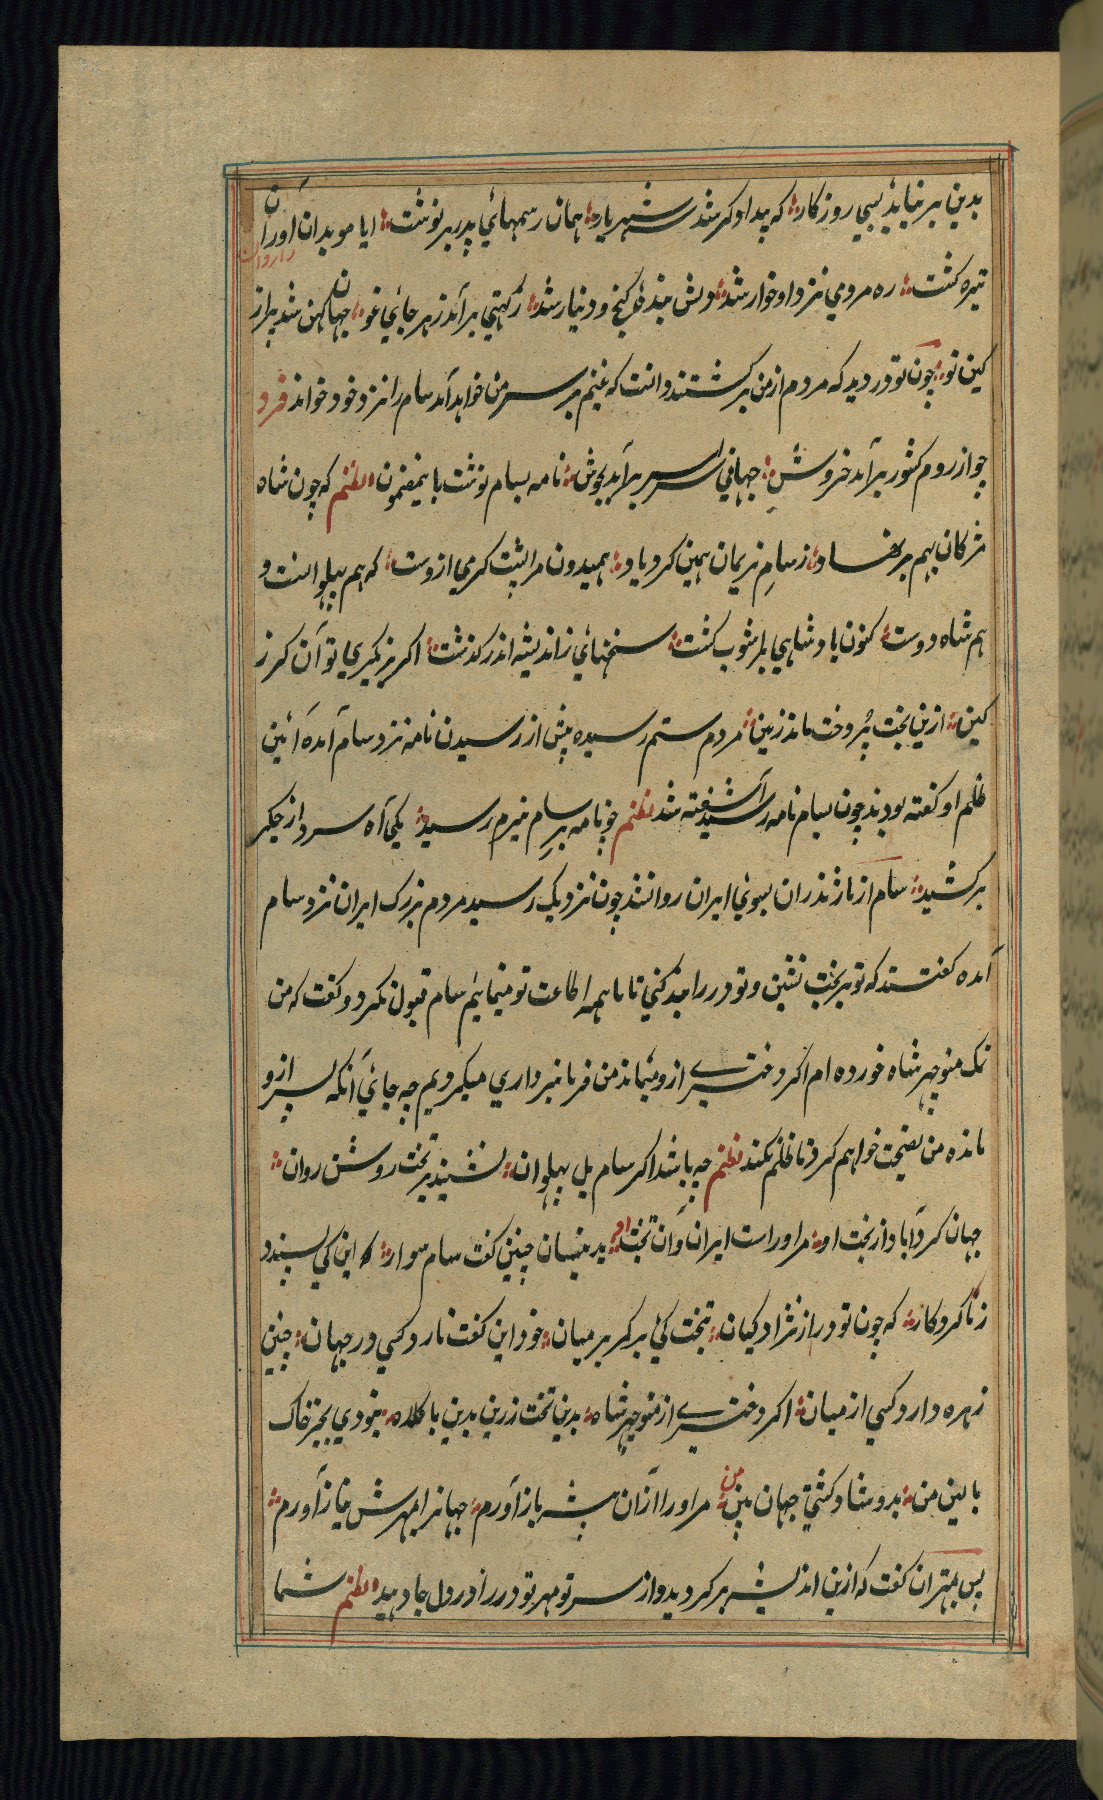 بدین بر نیامد بسی روزکار ؛ که بیدادکر شد شهریار ؛ همان رسمهائی پدر بر نوشت ؛ ابا موبدان او ران
تیره کشت ؛ ره مردمی نزد او خوار شد ؛ دلش بنده کنج و دینار شد ؛ ز کیتی بر آمد ز هر جائی غو ؛ جهان کهن شد پر از
کین نو ؛ چون نودر دید که مردم از من برکشتند دانست که غنیم بر سر من خواهد آمد سام را نزد خود خواند فرد
چو از روم کشور بر آمد خروش ؛ جهانی سراسر بر آمد بجوش ؛ نامه بسام نوشت باینمضمون نظم که چون شاه
مژکان بهم بر نهاد ؛ ز سام نریمان همین کرد یاد ؛ همیدون مرا پشت کرمی ازوست ؛ که هم پهلوانست و
هم شاه دوست ؛ کنون پادشاهی پرآشوب کشت ؛ سخنهائی ز اندیشه اندر کذشت ؛ اکر بر نکیری تو آن کرز
کین ؛ ازین تخت پردخت ماند زمین ؛ مردم ستم رسیده پیش از رسیدن نامه نزد سام آمده آئین
ظلم او کفته بودند چون بسام نامه رسید آشفته شد نظم چو نامه بر سام نیرم رسید ؛ یکی آه سرد از جکر
بر کشید ؛ سام از ماژندران بسوئی ایران روانشد چون نزدیک رسید مردم بزرک ایران نزد سام
آمده کفتند که تو بر تخت نشین و نودر را بند کنی تا ما همه اطاعت تو مینمائیم سام قبول نکرد و کفت که من
نمک منوچهر شاه خورده ام اکر دختری ازو میماند من فرمانبرداری میکردیم چه جائی آنکه پسر ازو
مانده من نصیحت خواهم کرد تا ظلم نکند نظم چه باشد اکر سام یل پهلوان ؛ نشیند بر تخت روشن روان ؛
جهان کرد آباد از بخت او ؛ مر او راست ایران و آن تخت او ؛ بدینسان چنین کفت سام سوار ؛ که این کی پسندد
ز ما کردکار ؛ که چون نودر از نژاد کیان ؛ بتخت کئی بر کمر بر میان ؛ خود این کفت نارد کسی در جهان ؛ چنین
زهره دارد کسی از میان ؛ اکر دختری از منوچهر شاه ؛ بدین تخت زرین بدین با کلاه ؛ نبودی بجز خاک
بالین من ؛ بدو شاد کشتی جهان بین من ؛ مر او را از آن بشر باز آورم ؛ جهانرا بمهرش نیاز آورم ؛
پس بمهتران کفت که ازین اندیشه برکردید و از سر نو مهر نودر را در دل جا دهید نظم شما